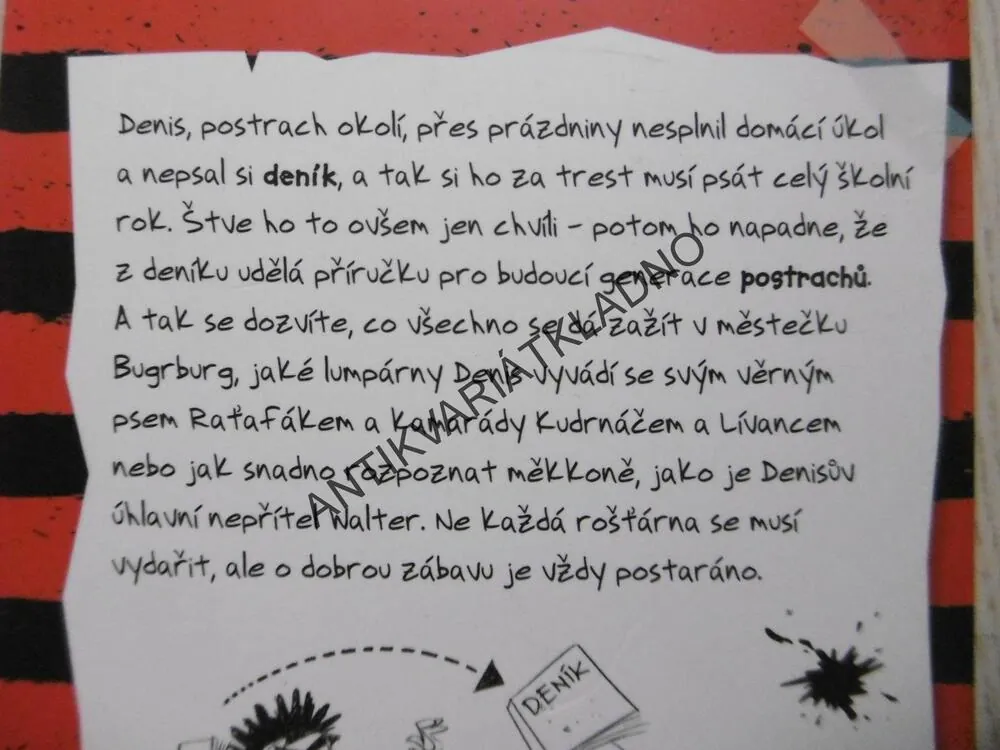 Denis, postrach okolí, přes prázdniny nesplnil domácí úkol
a nepsal si deník, a tak si ho za trest musí psát celý školní
rok. Štve ho to ovšem jen chvíli – potom ho napadne, že
z deníku udělá příručku pro budoucí generace postrachů.
A tak se dozvíte, co všechno se dá zažít v městečku
Bugrburg, jaké lumpárny Denis vyvádí se svým věrným
psem Raťafákem a kamarády Kudrnáčem a Lívancem
nebo jak snadno rozpoznat měkkoně, jako je Denisův
úhlavní nepřítel Walter. Ne každá rošťárna se musí
vydařit, ale o dobrou zábavu je vždy postaráno.
ANTIKVARIÁTKLADNO
DENÍK